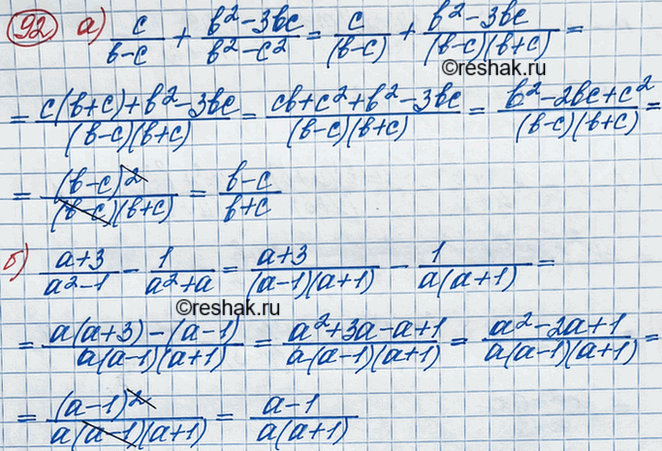 92 а) c/(b-c) + (b²-3bc)/(b²-c²) = c/(b-c) + (b²-3bc)/((b-c)(b+c)) =
©reshak.ru
= (c(b+c)+b²-3bc)/((b-c)(b+c)) = (cb+c²+b²-3bc)/((b-c)(b+c)) = (b²-2bc+c²)/((b-c)(b+c)) =
= (b-c)²/((b-c)(b+c)) = (b-c)/(b+c)
б) (a+3)/(a²-1) - 1/(a²+a) = (a+3)/((a-1)(a+1)) - 1/(a(a+1)) =
©reshak.ru
= (a(a+3)-(a-1))/(a(a-1)(a+1)) = (a²+3a-a+1)/(a(a-1)(a+1)) = (a²-2a+1)/(a(a-1)(a+1)) =
= (a-1)²/(a(a-1)(a+1)) = (a-1)/(a(a+1))